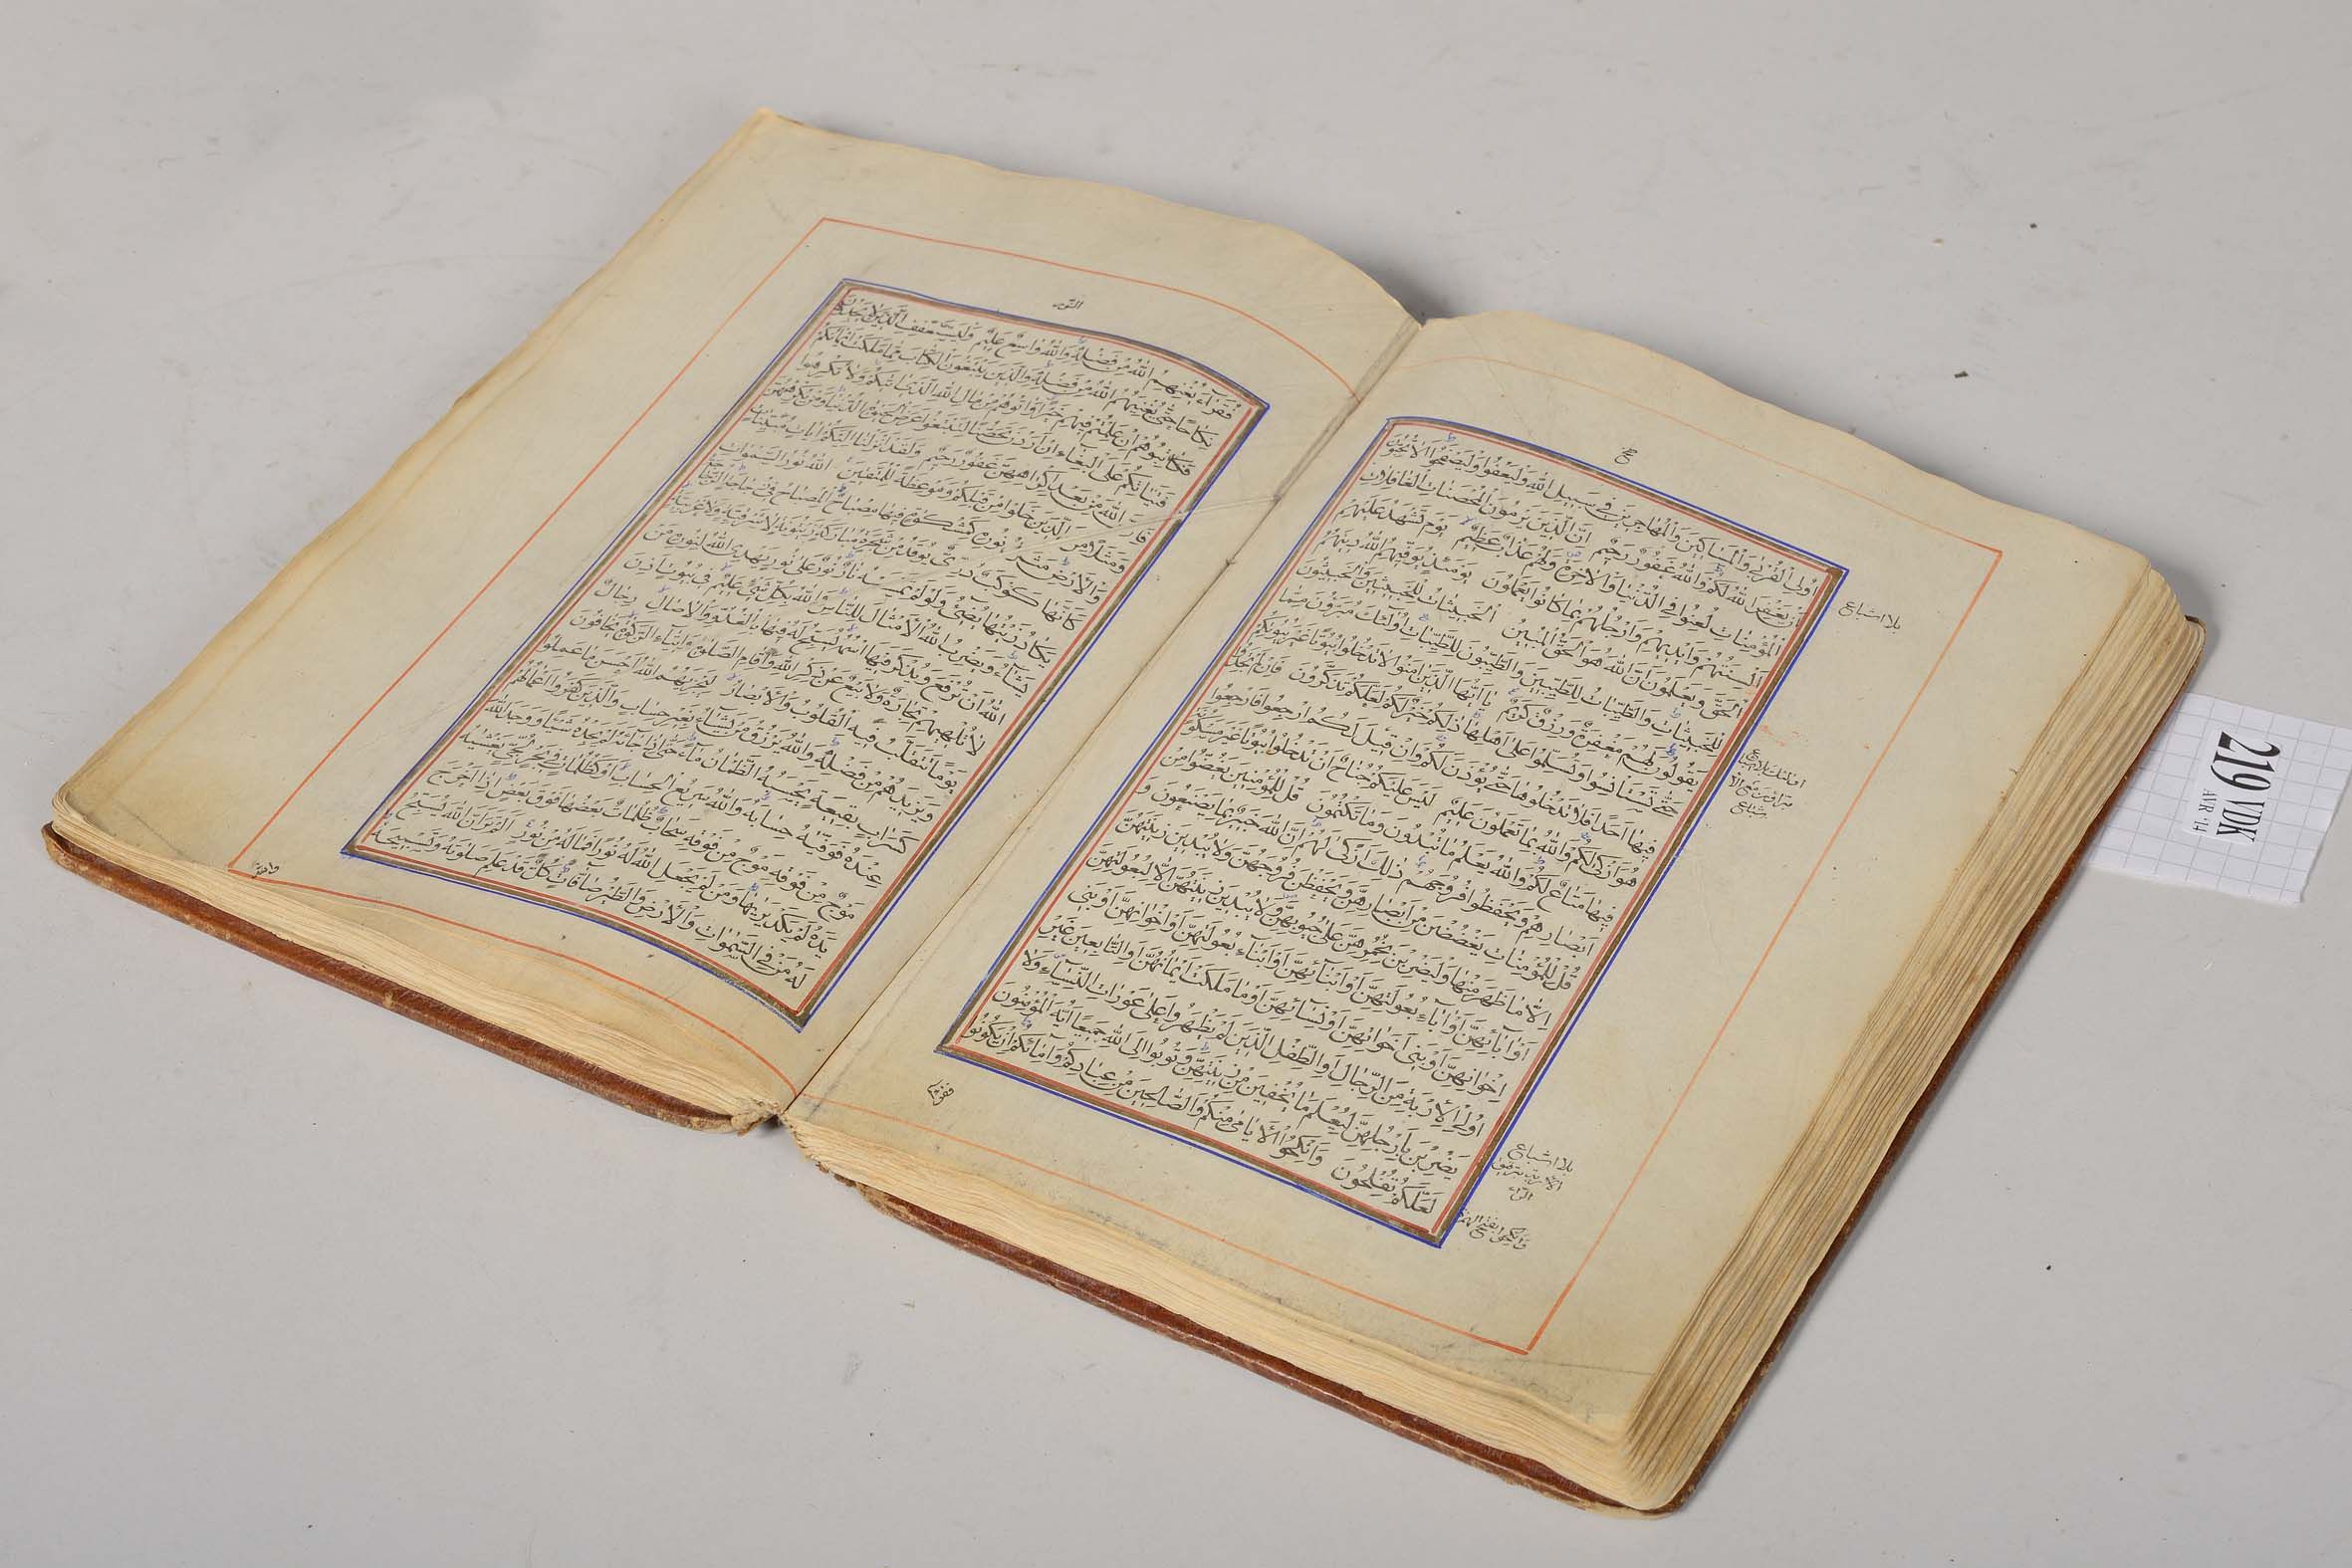 اُولِي الْقُرْبٰى وَالْمَسَاكِينَ وَالْمُهَاجِرِينَ فِي سَبِيلِ اللّٰهِ وَلْيَعْفُوا وَلْيَصْفَحُوا اَلَا تُحِبُّونَ
اَنْ يَغْفِرَ اللّٰهُ لَكُمْ وَاللّٰهُ غَفُورٌ رَحِيمٌ اِنَّ الَّذِينَ يَرْمُونَ الْمُحْصَنَاتِ الْغَافِلَاتِ
الْمُؤْمِنَاتِ لُعِنُوا فِي الدُّنْيَا وَالْاٰخِرَةِ وَلَهُمْ عَذَابٌ عَظِيمٌ يَوْمَ تَشْهَدُ عَلَيْهِمْ
اَلْسِنَتُهُمْ وَاَيْدِيهِمْ وَاَرْجُلُهُمْ بِمَا كَانُوا يَعْمَلُونَ يَوْمَئِذٍ يُوَفِّيهِمُ اللّٰهُ دِينَهُمُ
الْحَقَّ وَيَعْلَمُونَ اَنَّ اللّٰهَ هُوَ الْحَقُّ الْمُبِينُ اَلْخَبِيثَاتُ لِلْخَبِيثِينَ وَالْخَبِيثُونَ
لِلْخَبِيثَاتِ وَالطَّيِّبَاتُ لِلطَّيِّبِينَ وَالطَّيِّبُونَ لِلطَّيِّبَاتِ اُولٰئِكَ مُبَرَّؤُنَ مِمَّا
يَقُولُونَ لَهُمْ مَغْفِرَةٌ وَرِزْقٌ كَرِيمٌ يَا اَيُّهَا الَّذِينَ اٰمَنُوا لَا تَدْخُلُوا بُيُوتًا غَيْرَ بُيُوتِكُمْ
حَتّٰى تَسْتَاْنِسُوا وَتُسَلِّمُوا عَلٰى اَهْلِهَا ذٰلِكُمْ خَيْرٌ لَكُمْ لَعَلَّكُمْ تَذَكَّرُونَ فَاِنْ لَمْ تَجِدُوا
فِيهَا اَحَدًا فَلَا تَدْخُلُوهَا حَتّٰى يُؤْذَنَ لَكُمْ وَاِنْ قِيلَ لَكُمُ ارْجِعُوا فَارْجِعُوا
هُوَ اَزْكٰى لَكُمْ وَاللّٰهُ بِمَا تَعْمَلُونَ عَلِيمٌ لَيْسَ عَلَيْكُمْ جُنَاحٌ اَنْ تَدْخُلُوا بُيُوتًا غَيْرَ مَسْكُونَةٍ
فِيهَا مَتَاعٌ لَكُمْ وَاللّٰهُ يَعْلَمُ مَا تُبْدُونَ وَمَا تَكْتُمُونَ قُلْ لِلْمُؤْمِنِينَ يَغُضُّوا مِنْ
اَبْصَارِهِمْ وَيَحْفَظُوا فُرُوجَهُمْ ذٰلِكَ اَزْكٰى لَهُمْ اِنَّ اللّٰهَ خَبِيرٌ بِمَا يَصْنَعُونَ وَ
قُلْ لِلْمُؤْمِنَاتِ يَغْضُضْنَ مِنْ اَبْصَارِهِنَّ وَيَحْفَظْنَ فُرُوجَهُنَّ وَلَا يُبْدِينَ زِينَتَهُنَّ
اِلَّا مَا ظَهَرَ مِنْهَا وَلْيَضْرِبْنَ بِخُمُرِهِنَّ عَلٰى جُيُوبِهِنَّ وَلَا يُبْدِينَ زِينَتَهُنَّ اِلَّا لِبُعُولَتِهِنَّ
اَوْ اٰبَائِهِنَّ اَوْ اٰبَاءِ بُعُولَتِهِنَّ اَوْ اَبْنَائِهِنَّ اَوْ اَبْنَاءِ بُعُولَتِهِنَّ اَوْ اِخْوَانِهِنَّ اَوْ بَنِي
اِخْوَانِهِنَّ اَوْ بَنِي اَخَوَاتِهِنَّ اَوْ نِسَائِهِنَّ اَوْ مَا مَلَكَتْ اَيْمَانُهُنَّ اَوِ التَّابِعِينَ غَيْرِ
اُولِي الْاِرْبَةِ مِنَ الرِّجَالِ اَوِ الطِّفْلِ الَّذِينَ لَمْ يَظْهَرُوا عَلٰى عَوْرَاتِ النِّسَاءِ وَلَا
يَضْرِبْنَ بِاَرْجُلِهِنَّ لِيُعْلَمَ مَا يُخْفِينَ مِنْ زِينَتِهِنَّ وَتُوبُوا اِلَى اللّٰهِ جَمِيعًا اَيُّهَ الْمُؤْمِنُونَ
لَعَلَّكُمْ تُفْلِحُونَ وَاَنْكِحُوا الْاَيَامٰى مِنْكُمْ وَالصَّالِحِينَ مِنْ عِبَادِكُمْ وَاِمَائِكُمْ اِنْ يَكُونُوا
بلا اشباع
بلا اشباع
النّور
فُقَرَاءَ يُغْنِهِمُ اللّٰهُ مِنْ فَضْلِهِ وَاللّٰهُ وَاسِعٌ عَلِيمٌ وَلْيَسْتَعْفِفِ الَّذِينَ لَا يَجِدُونَ
نِكَاحًا حَتّٰى يُغْنِيَهُمُ اللّٰهُ مِنْ فَضْلِهِ وَالَّذِينَ يَبْتَغُونَ الْكِتَابَ مِمَّا مَلَكَتْ اَيْمَانُكُمْ
فَكَاتِبُوهُمْ اِنْ عَلِمْتُمْ فِيهِمْ خَيْرًا وَاٰتُوهُمْ مِنْ مَالِ اللّٰهِ الَّذِي اٰتٰيكُمْ وَلَا تُكْرِهُوا
فَتَيَاتِكُمْ عَلَى الْبِغَاءِ اِنْ اَرَدْنَ تَحَصُّنًا لِتَبْتَغُوا عَرَضَ الْحَيٰوةِ الدُّنْيَا وَمَنْ يُكْرِهْهُنَّ
فَاِنَّ اللّٰهَ مِنْ بَعْدِ اِكْرَاهِهِنَّ غَفُورٌ رَحِيمٌ وَلَقَدْ اَنْزَلْنَا اِلَيْكُمْ اٰيَاتٍ مُبَيِّنَاتٍ
وَمَثَلًا مِنَ الَّذِينَ خَلَوْا مِنْ قَبْلِكُمْ وَمَوْعِظَةً لِلْمُتَّقِينَ اَللّٰهُ نُورُ السَّمٰوَاتِ
وَالْاَرْضِ مَثَلُ نُورِهِ كَمِشْكٰوةٍ فِيهَا مِصْبَاحٌ اَلْمِصْبَاحُ فِي زُجَاجَةٍ اَلزُّجَاجَةُ
كَاَنَّهَا كَوْكَبٌ دُرِّيٌّ يُوقَدُ مِنْ شَجَرَةٍ مُبَارَكَةٍ زَيْتُونَةٍ لَا شَرْقِيَّةٍ وَلَا غَرْبِيَّةٍ
يَكَادُ زَيْتُهَا يُضِيءُ وَلَوْ لَمْ تَمْسَسْهُ نَارٌ نُورٌ عَلٰى نُورٍ يَهْدِي اللّٰهُ لِنُورِهِ مَنْ
يَشَاءُ وَيَضْرِبُ اللّٰهُ الْاَمْثَالَ لِلنَّاسِ وَاللّٰهُ بِكُلِّ شَيْءٍ عَلِيمٌ فِي بُيُوتٍ اَذِنَ
اللّٰهُ اَنْ تُرْفَعَ وَيُذْكَرَ فِيهَا اسْمُهُ يُسَبِّحُ لَهُ فِيهَا بِالْغُدُوِّ وَالْاٰصَالِ رِجَالٌ
لَا تُلْهِيهِمْ تِجَارَةٌ وَلَا بَيْعٌ عَنْ ذِكْرِ اللّٰهِ وَاِقَامِ الصَّلٰوةِ وَاِيتَاءِ الزَّكٰوةِ يَخَافُونَ
يَوْمًا تَتَقَلَّبُ فِيهِ الْقُلُوبُ وَالْاَبْصَارُ لِيَجْزِيَهُمُ اللّٰهُ اَحْسَنَ مَا عَمِلُوا
وَيَزِيدَهُمْ مِنْ فَضْلِهِ وَاللّٰهُ يَرْزُقُ مَنْ يَشَاءُ بِغَيْرِ حِسَابٍ وَالَّذِينَ كَفَرُوا اَعْمَالُهُمْ
كَسَرَابٍ بِقِيعَةٍ يَحْسَبُهُ الظَّمْاٰنُ مَاءً حَتّٰى اِذَا جَاءَهُ لَمْ يَجِدْهُ شَيْئًا وَوَجَدَ اللّٰهَ
عِنْدَهُ فَوَفّٰيهُ حِسَابَهُ وَاللّٰهُ سَرِيعُ الْحِسَابِ اَوْ كَظُلُمَاتٍ فِي بَحْرٍ لُجِّيٍّ يَغْشٰيهُ
مَوْجٌ مِنْ فَوْقِهِ مَوْجٌ مِنْ فَوْقِهِ سَحَابٌ ظُلُمَاتٌ بَعْضُهَا فَوْقَ بَعْضٍ اِذَا اَخْرَجَ
يَدَهُ لَمْ يَكَدْ يَرٰيهَا وَمَنْ لَمْ يَجْعَلِ اللّٰهُ لَهُ نُورًا فَمَا لَهُ مِنْ نُورٍ اَلَمْ تَرَ اَنَّ اللّٰهَ يُسَبِّحُ
لَهُ مَنْ فِي السَّمٰوَاتِ وَالْاَرْضِ وَالطَّيْرُ صَافَّاتٍ كُلٌّ قَدْ عَلِمَ صَلٰوتَهُ وَتَسْبِيحَهُ
219 VDK
AVR. '14